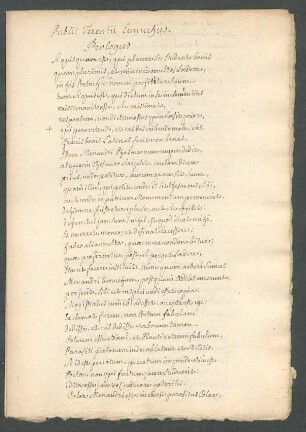 Publii Terentii Eunuchus.
Prologus
Si quisquam est, qui placere se studeat bonis
quam plurimis, et minime multos laedere,
in his Poeta hic nomen profitetur suum
tum si quis est, qui dictum in se inclementius
existimavit esse, sic existimet,
responsum, non dictum esse, quia laesit prior,
qui bene vertendo, et eas
bonis Latinas fecit non bonas.
Idem Menandri Phasma nunc nuper dedit,
atque in Thesauro scripsit, causam dicere
prius unde petitur, aurum quare sit suum,
quam ille, qui petit, unde is sit thesaurus sibi,
aut unde in patrium Monumentum pervenerit.
dehinc, ne frustretur ipse se, aut sic cogitet:
defunctus jam sum, nihil est, quod dicat mihi.
Is ne erret, moneo, et desinat lacessere:
habeo alia multa, quae nunc condonabitur,
quae proferentur post, si perget laedere,
Nunc quam acturi sumus
Menandri Eunuchum, postquam Aediles emerunt,
perfecit, sibi ut inspiciundi esset copia.
Magistratus cum ibi adesset, occepta est agi:
exclamat, furem, non Poetam fabulam
dedisse, et nil dedisse verborum tamen.
Colacem esse et Plauti veterem fabulam,
Parasiti personam inde ablatam et Militis.
Si id est peccatum, peccatum imprudentia est
Poetae, non qui furtum facere studuerit:
id ita esse, vos jam judicare poteritis.
Colax Menandri est in ea est parasitus Colax,